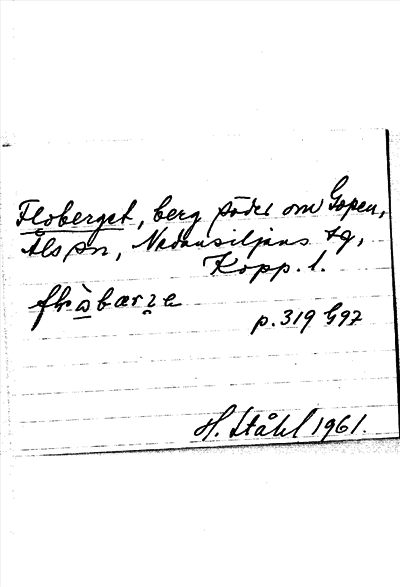 Floberget, berg söder om Gopen,
Åls sn, Nedansiljans tg,
Kopp. l.
p. 319 G97
H. Ståhl 1961.